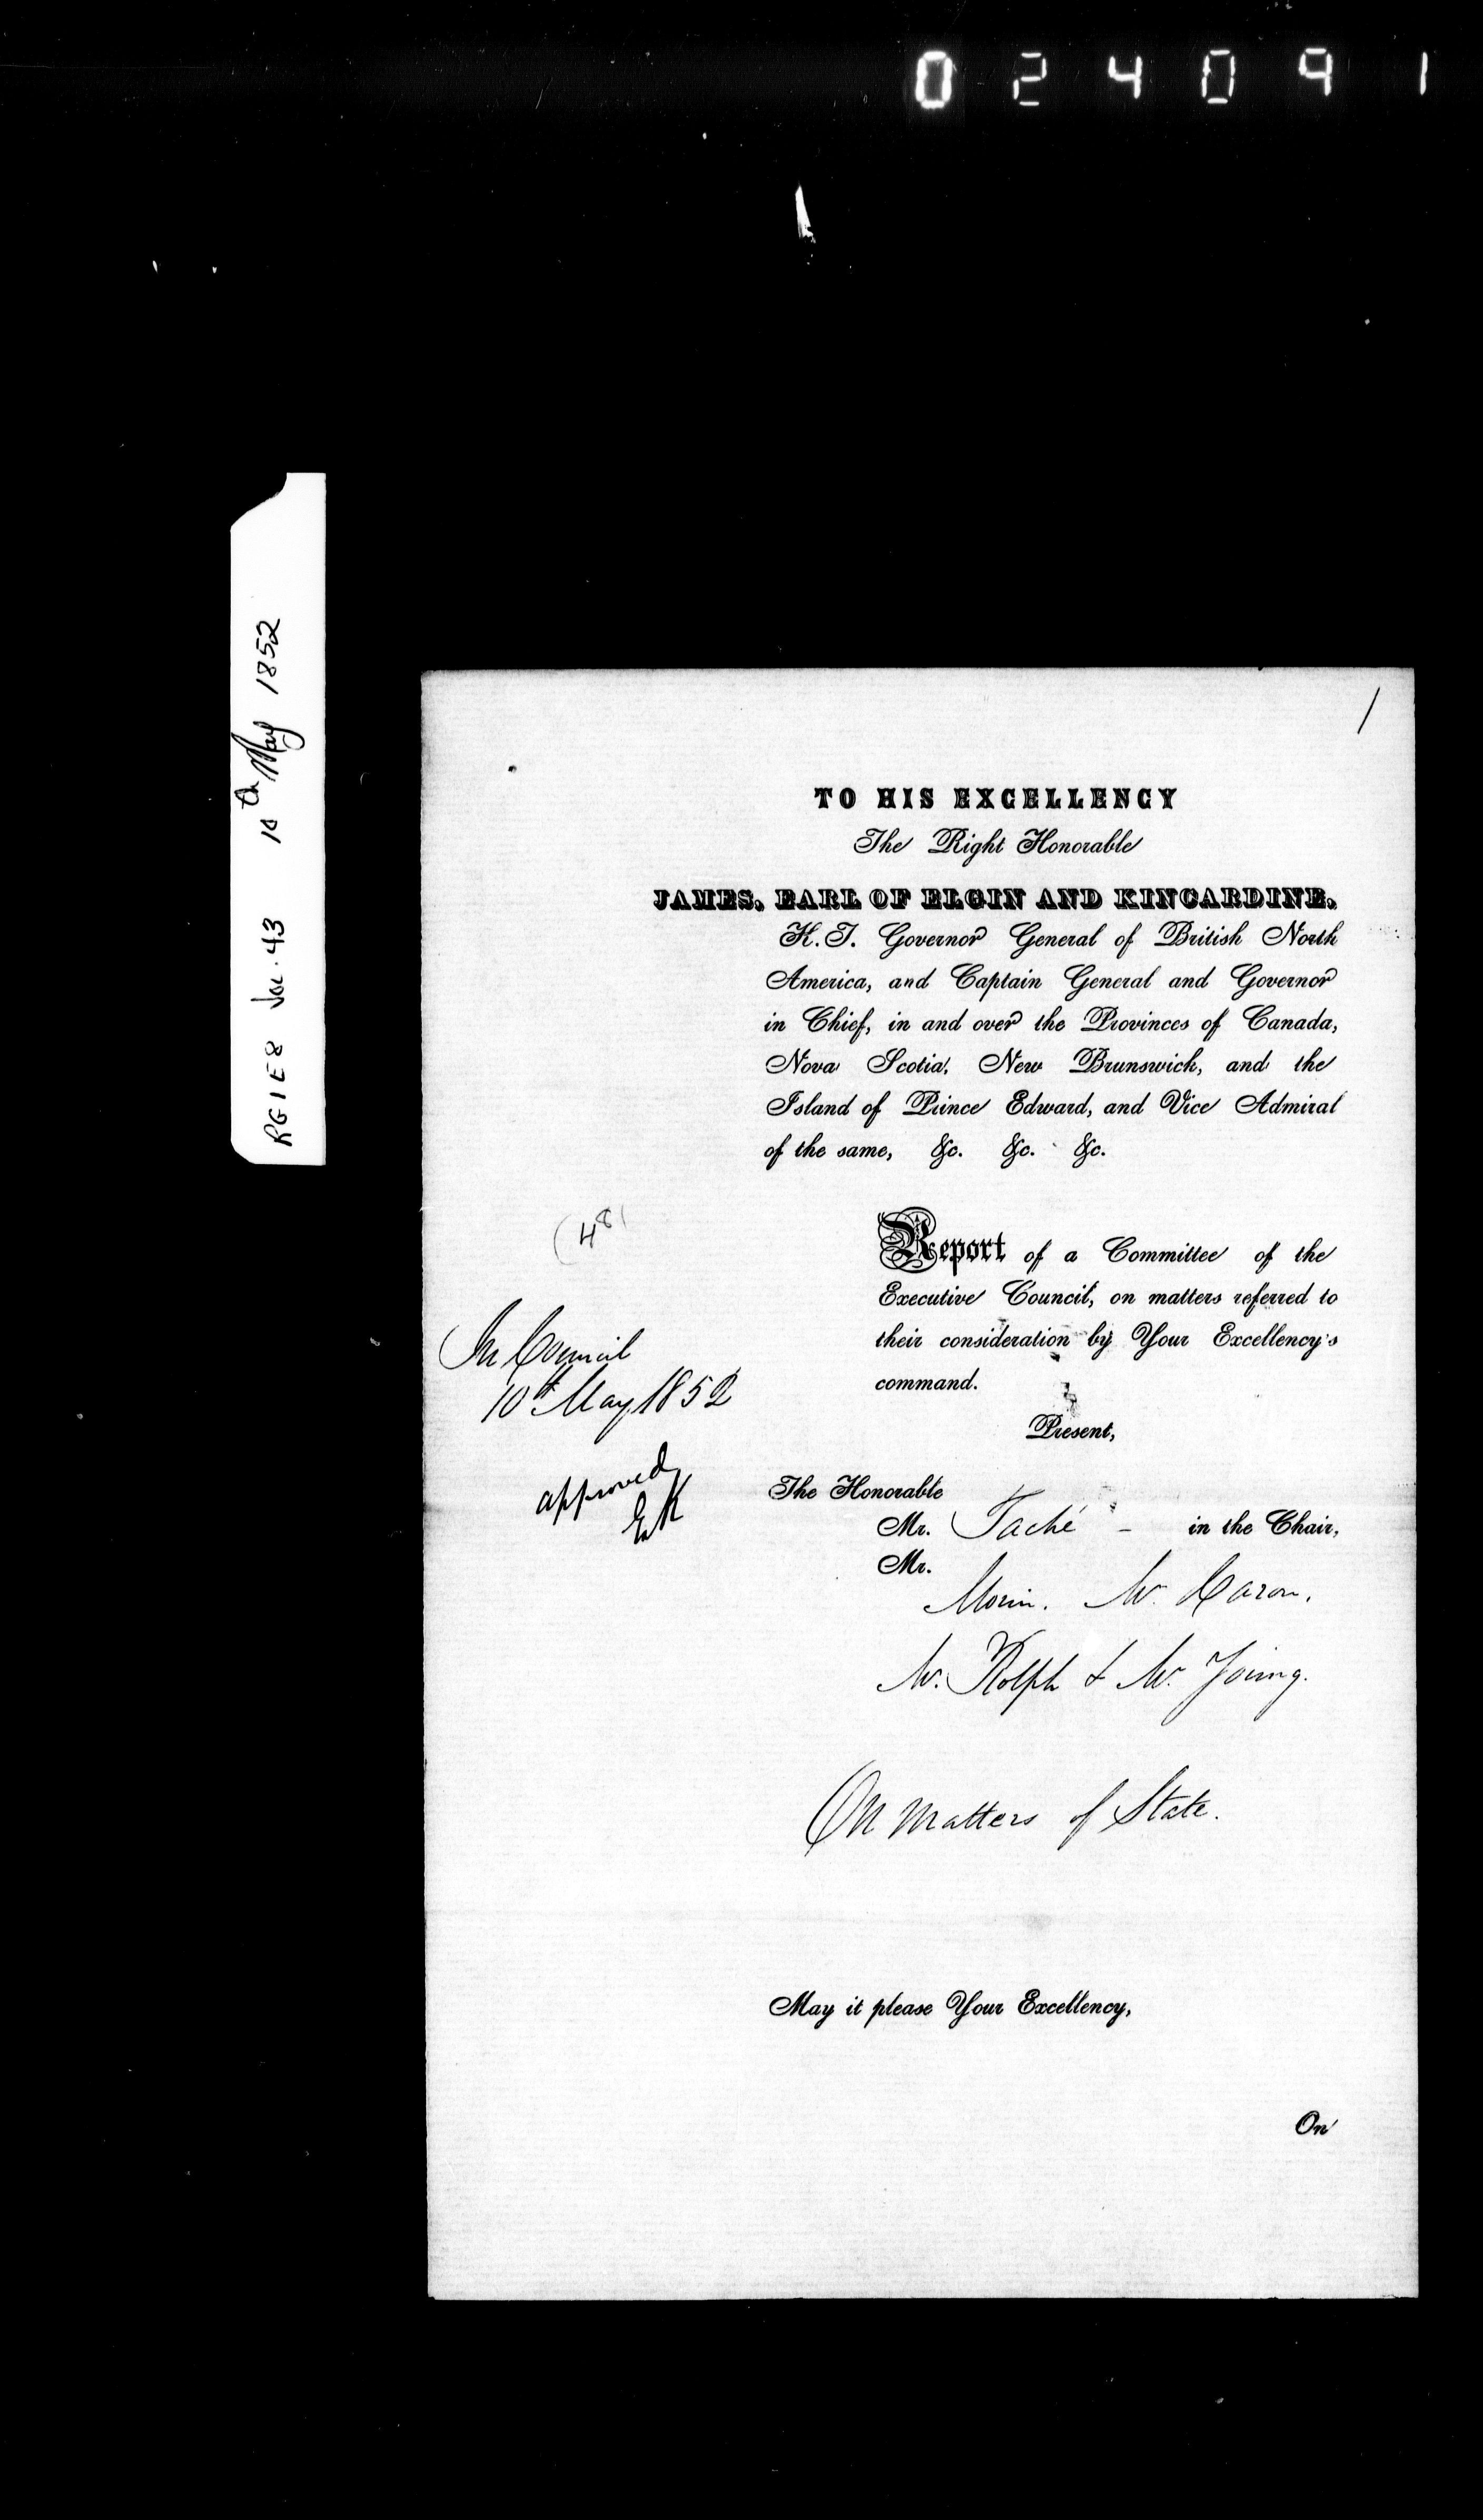 024091
RG1E8 Vol. 43 10th May 1852
1
TO HIS EXCELLENCY
The Right Honorable
JAMES, EARL OF ELGIN AND KINCARDINE,
K.T. Governor General of British North
America, and Captain General and Governor
in Chief, in and over the Provinces of Canada,
Nova Scotia, New Brunswick, and the
Island of Prince Edward, and Vice Admiral
of the same, &c. &c. &c.
(48)
Report of a Committee of the
Executive Council, on matters referred to
their consideration by Your Excellency's
command.
In Council
10th May 1852
approved
EK
Present,
The Honorable
Mr. Taché - in the Chair,
Mr.
Morin. Mr. Caron.
Mr. Rolph & Mr. Young.
On Matters of State.
May it please Your Excellency,
On